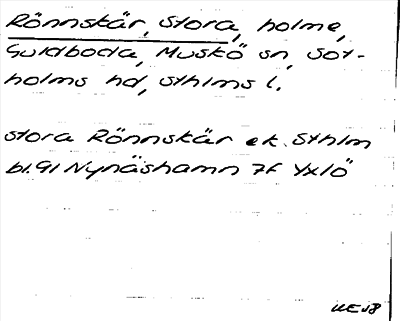 Rönnskär, Stora, holme,
Guldboda, Muskö sn, Sot-
holms hd, Sthlms l.
Stora Rönnskär ek. Sthlm
bl.91 Nynäshamn 7f Yxlö